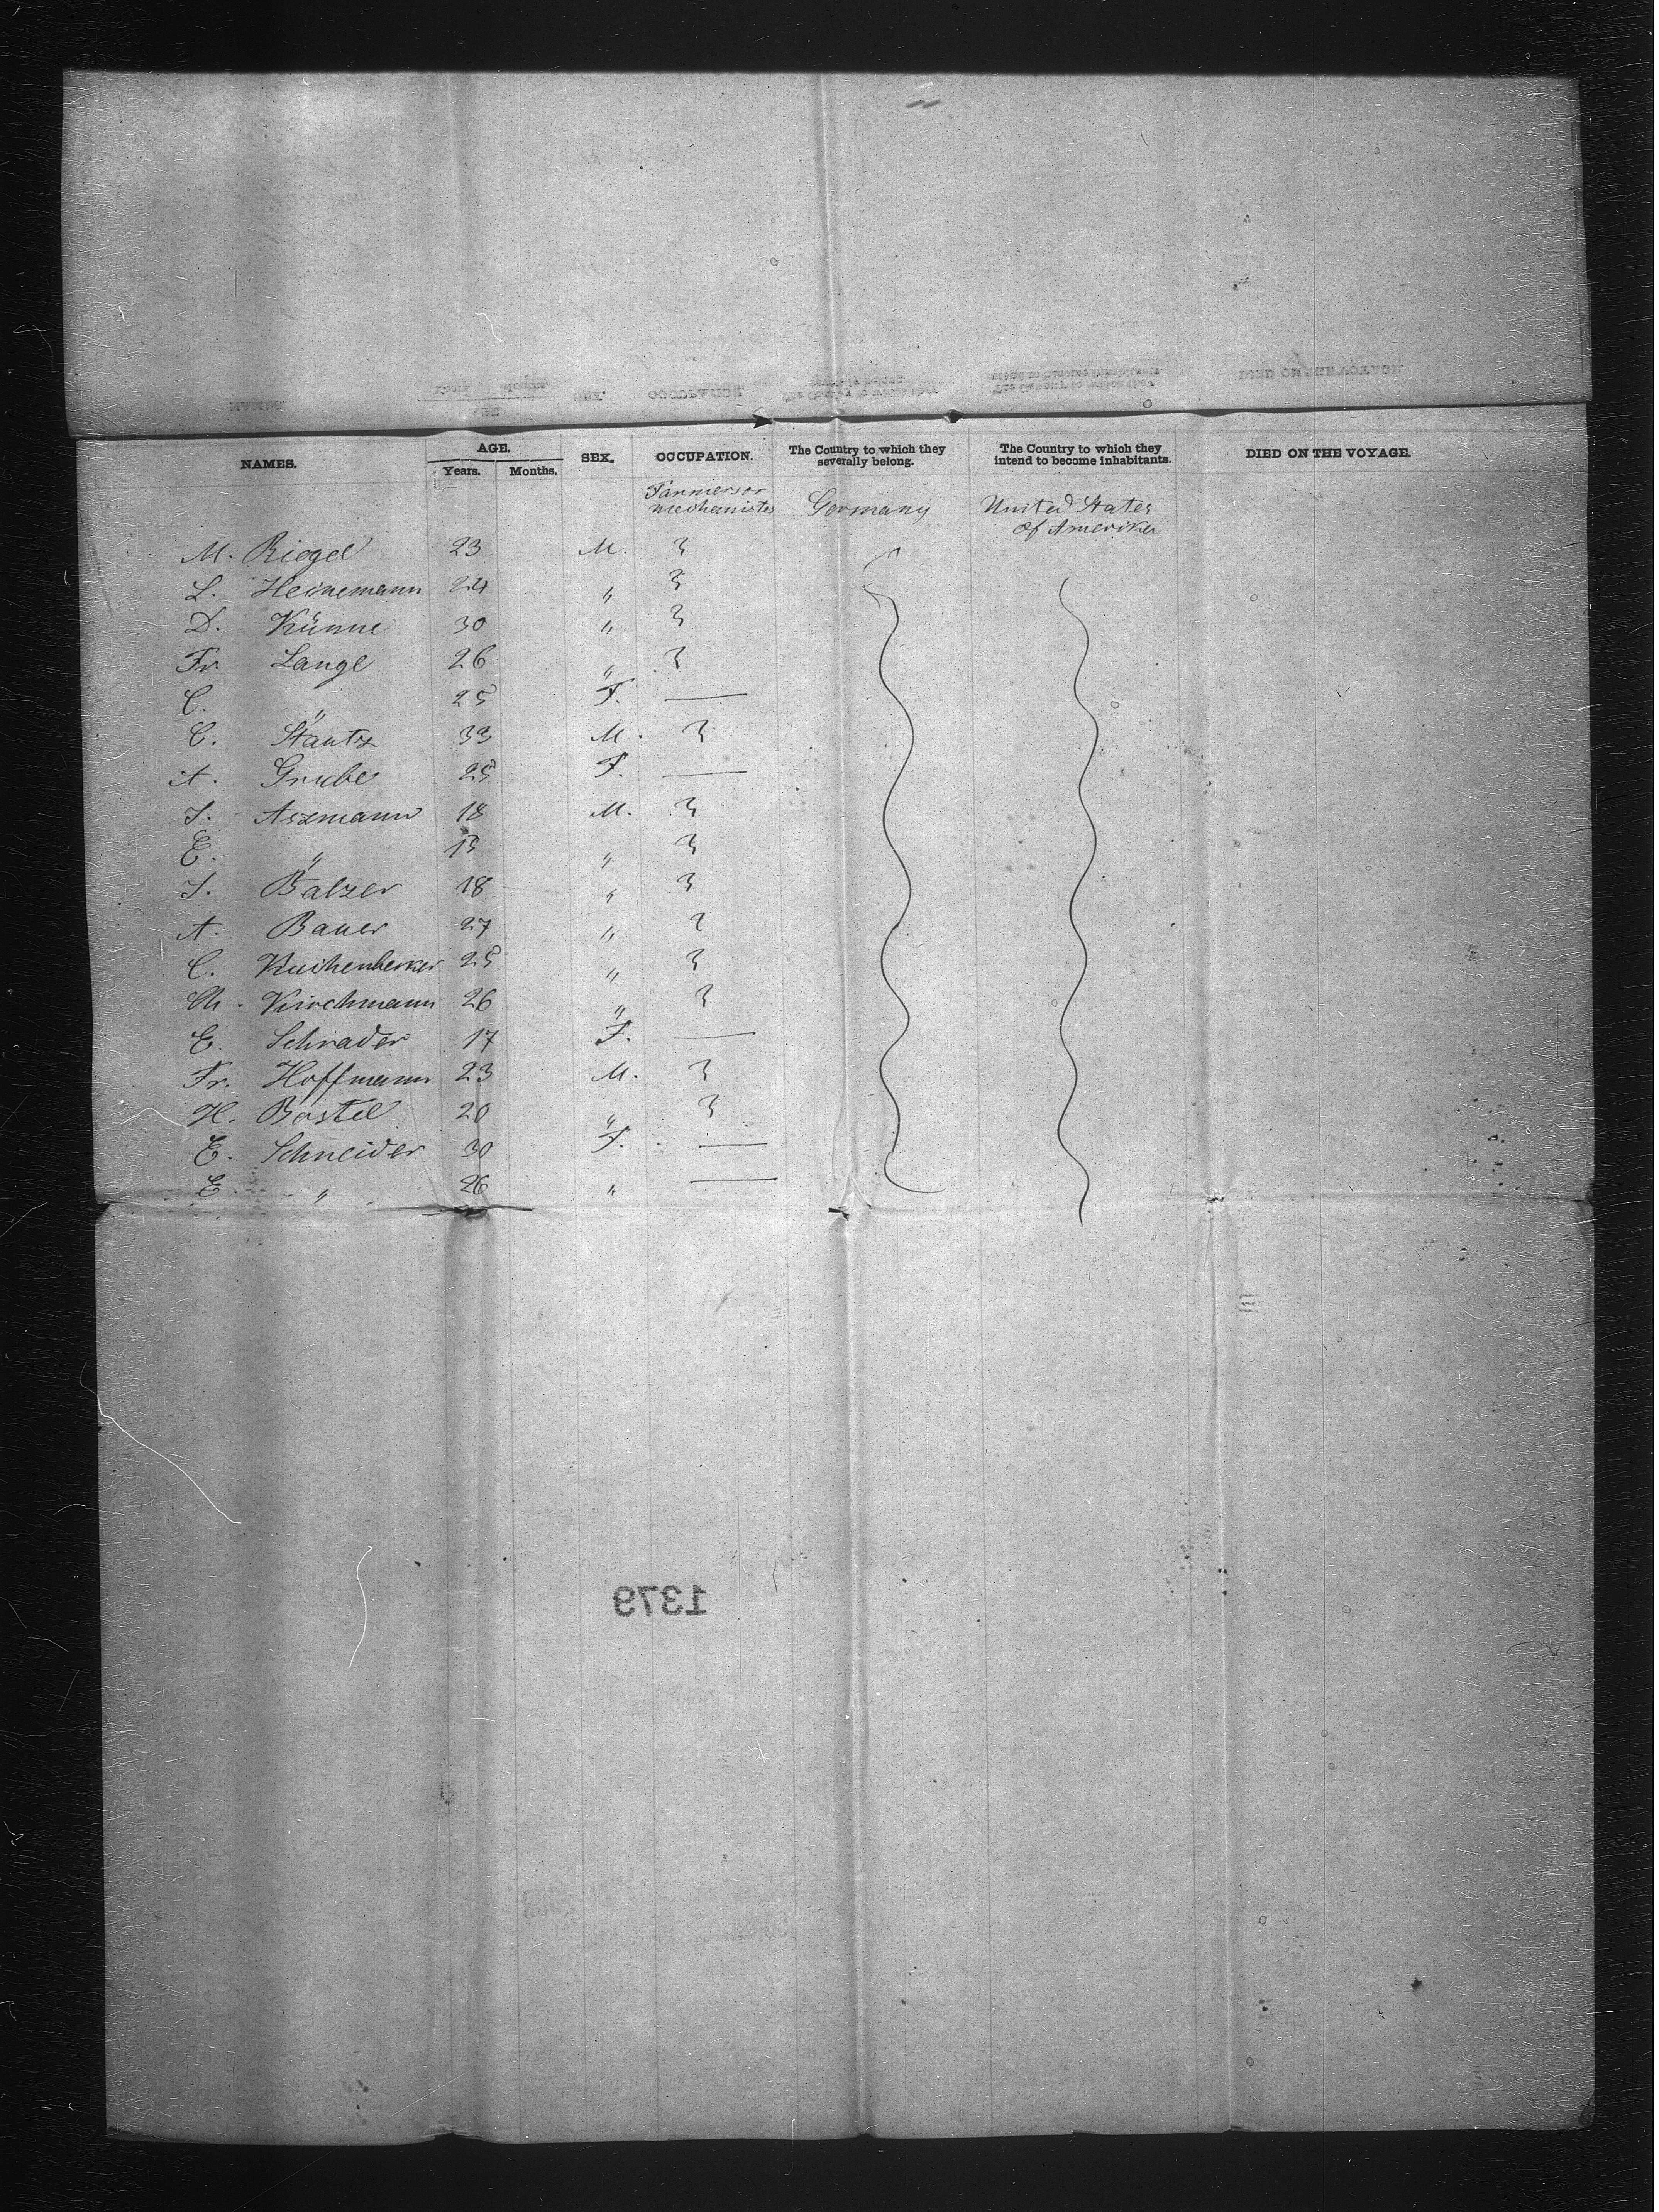 NAMES. AGE. Years. Months. SEX. OCCUPATION. The Country to which they severally belong. The Country to which they intend to become inhabitants. DIED ON THE VOYAGE.
Farmers or mechanists Germany United States of Amerika
M. Riegel 23 M. "
L. Heinemann 24 " "
D. Künne 30 " "
Fr. Lange 26 " "
C. " 25 F. —
C. Stautz 33 M. "
A. Grube 25 F. —
J. Aszmann 18 M. "
E. " 15 " "
J. Balzer 18 " "
A. Bauer 27 " "
C. Kuchenbecker 25 " "
Ch. Kirchmann 26 " "
E. Schrader 17 F. —
Fr. Hoffmann 23 M. "
H. Bostel 20 " "
E. Schneider 30 F. —
E. " 26 " —
1379